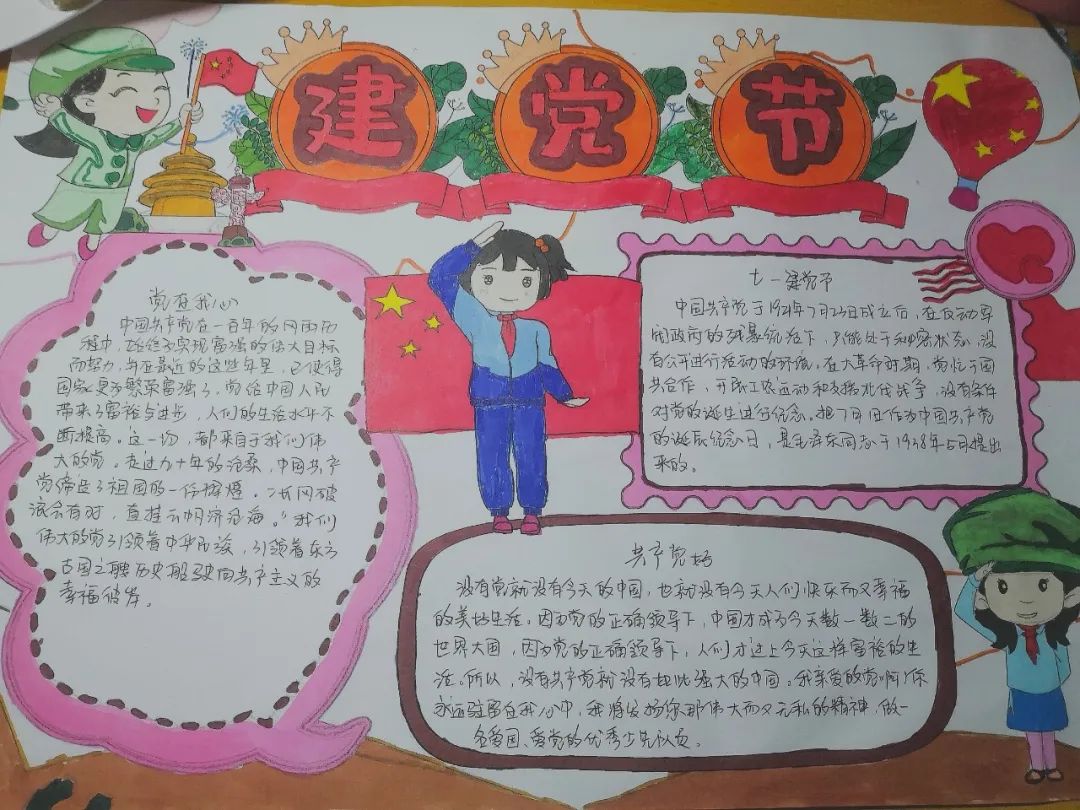 建党节
党在我心
中国共产党在一百年的风雨历
程中，始终了实现富强的伟大目标
而努力，并在最近的这些年里，已使得
国家更多繁荣富强了。党给中国人民
带来了富裕与进步，人们的生活水平不
断提高。这一切，都来自于我们伟
大的党。走过九十年的沧桑，中国共产
党缔造了祖国的一份辉煌。“长风破
浪会有时，直挂云帆济沧海。”我们
伟大的党引领着中华民族，引领着东方
古国之聘历史船驶向共产主义的
幸福彼岸。
七一建党节
中国共产党于1921年7月22日成立之后，在反动军
阀政府的残暴统治下，只能处于秘密状态，没
有公开进行活动的环境。在大革命时期，党忙于国
共合作，开展工农运动和支援北伐战争，没有条件
对党的诞生进行纪念。把7月1日作为中国共产党
的诞辰纪念日，是毛泽东同志于1938年5月提出
来的。
共产党好
没有党就没有今天的中国，也就没有今天人们快乐而又幸福
的美好生活。因为党的正确领导下，中国才成为今天数一数二的
世界大国，因为党的正确领导下，人们才过上今天这样富裕的生
活。所以，没有共产党就没有如此强大的中国。我亲爱的党啊！你
永远驻留在我心中，我将发扬你那伟大而又无私的精神，做一
名爱国、爱党的优秀少先队员。